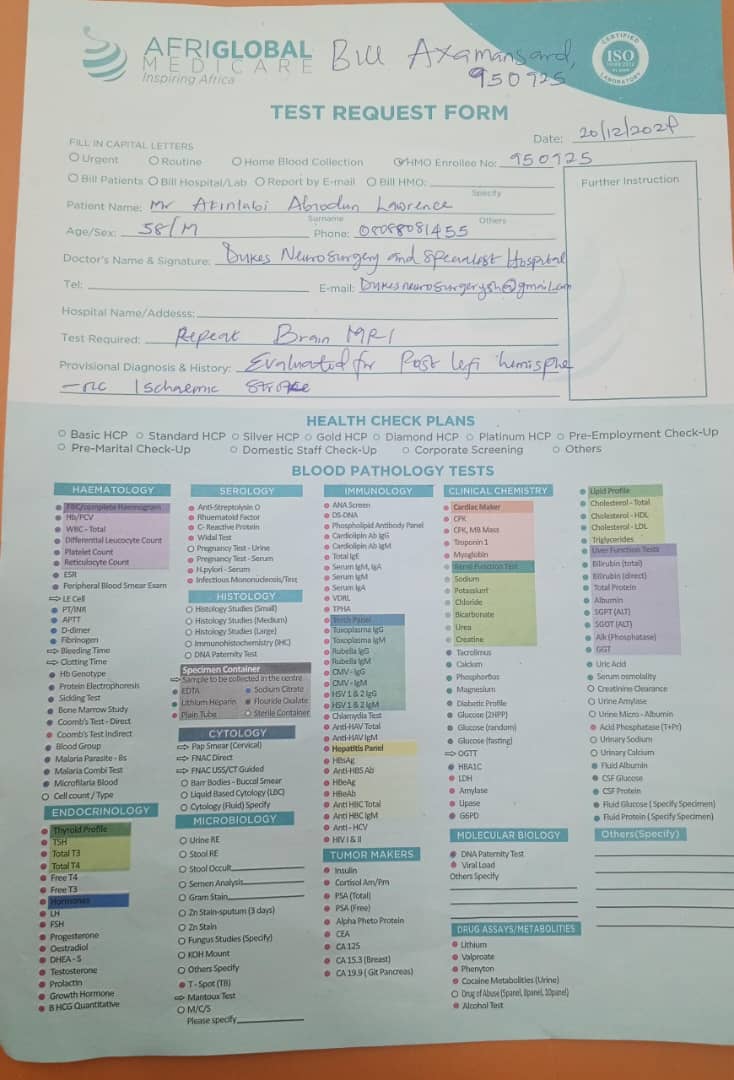 AFRIGLOBAL
MEDICARE
Inspiring Africa
Bill Axamansard,
950925
CERTIFIED
ISO
LABORATORY
TEST REQUEST FORM
Date: 20/12/202
FILL IN CAPITAL LETTERS
Urgent Routine Home Blood Collection HMO Enrollee No: 950925
Bill Patients Bill Hospital/Lab Report by E-mail Bill HMO:
Specify
Further Instruction
Patient Name: Mr Akinlabi Abiodun Lawrence
Surname Others
Age/Sex: 58/M Phone: 08088081455
Doctor's Name & Signature: Dukes Neurosurgery and Specialist Hospital
Tel: E-mail: Dukesneurosurgerysh@gmail.com
Hospital Name/Addesss:
Test Required: Repeat Brain MRI
Provisional Diagnosis & History: Evaluated for Post left hemisphe
-ric Ischaemic Stroke
HEALTH CHECK PLANS
Basic HCP Standard HCP Silver HCP Gold HCP Diamond HCP Platinum HCP Pre-Employment Check-Up
Pre-Marital Check-Up Domestic Staff Check-Up Corporate Screening Others
BLOOD PATHOLOGY TESTS
HAEMATOLOGY
FBC/complete Haemogram
Hb/PCV
WBC - Total
Differential Leucocyte Count
Platelet Count
Reticulocyte Count
ESR
Peripheral Blood Smear Exam
LE Cell
PT/INR
APTT
D-dimer
Fibrinogen
Bleeding Time
Clotting Time
Hb Genotype
Protein Electrophoresis
Sickling Test
Bone Marrow Study
Coomb's Test - Direct
Coomb's Test Indirect
Blood Group
Malaria Parasite - Bs
Malaria Combi Test
Microfilaria Blood
Cell count / Type
ENDOCRINOLOGY
Thyroid Profile
TSH
Total T3
Total T4
Free T4
Free T3
Hormones
LH
FSH
Progesterone
Oestradiol
DHEA - S
Testosterone
Prolactin
Growth Hormone
B HCG Quantitative
SEROLOGY
Anti-Streptolysin O
Rhuematoid Factor
C- Reactive Protein
Widal Test
Pregnancy Test - Urine
Pregnancy Test - Serum
H.pylori - Serum
Infectious Mononucleosis/Test
HISTOLOGY
Histology Studies (Small)
Histology Studies (Medium)
Histology Studies (Large)
Immunohistochemistry (IHC)
DNA Paternity Test
Specimen Container
Sample to be collected in the centre
EDTA Sodium Citrate
Lithium Heparin Flouride Oxalate
Plain Tube Sterile Container
CYTOLOGY
Pap Smear (Cervical)
FNAC Direct
FNAC USS/CT Guided
Barr Bodies - Buccal Smear
Liquid Based Cytology (LBC)
Cytology (Fluid) Specify
MICROBIOLOGY
Urine RE
Stool RE
Stool Occult
Semen Analysis
Gram Stain
Zn Stain-sputum (3 days)
Zn Stain
Fungus Studies (Specify)
KOH Mount
Others Specify
T - Spot (TB)
Mantoux Test
M/C/S
Please specify
IMMUNOLOGY
ANA Screen
DS-DNA
Phospholipid Antibody Panel
Cardiolipin Ab IgG
Cardiolipin Ab IgM
Total IgE
Serum IgM, IgA
Serum IgM
Serum IgA
VDRL
TPHA
Torch Panel
Toxoplasma IgG
Toxoplasma IgM
Rubella IgG
Rubella IgM
CMV - IgG
CMV - IgM
HSV 1 & 2 IgG
HSV 1 & 2 IgM
Chlamydia Test
Anti-HAV Total
Anti-HAV IgM
Hepatitis Panel
HBsAg
Anti-HBS Ab
HBeAg
HBeAb
Anti HBC Total
Anti HBC IgM
Anti - HCV
HIV I & II
TUMOR MAKERS
Insulin
Cortisol Am/Pm
PSA (Total)
PSA (Free)
Alpha Pheto Protein
CEA
CA 125
CA 15.3 (Breast)
CA 19.9 ( Git Pancreas)
CLINICAL CHEMISTRY
Cardiac Maker
CPK
CPK, MB Mass
Troponin 1
Myoglobin
Renal Function Test
Sodium
Potassium
Chloride
Bicarbonate
Urea
Creatine
Tacrolimus
Calcium
Phosphorbus
Magnesium
Diabetic Profile
Glucose (2HPP)
Glucose (random)
Glucose (fasting)
OGTT
HBA1C
LDH
Amylase
Lipase
G6PD
MOLECULAR BIOLOGY
DNA Paternity Test
Viral Load
Others Specify
DRUG ASSAYS/METABOLITIES
Lithium
Valproate
Phenyton
Cocaine Metabolities (Urine)
Drug of Abuse (5panel, 8panel, 10panel)
Alcohol Test
Lipid Profile
Cholesterol - Total
Cholesterol - HDL
Cholesterol - LDL
Triglycerides
Liver Function Tests
Bilirubin (total)
Bilirubin (direct)
Total Protein
Albumin
SGPT (ALT)
SGOT (ALT)
Alk (Phosphatase)
GGT
Uric Acid
Serum osmolality
Creatinine Clearance
Urine Amylase
Urine Micro - Albumin
Acid Phosphatase (T+Pr)
Urinary Sodium
Urinary Calcium
Fluid Albumin
CSF Glucose
CSF Protein
Fluid Glucose ( Specify Specimen)
Fluid Protein ( Specify Specimen)
Others(Specify)